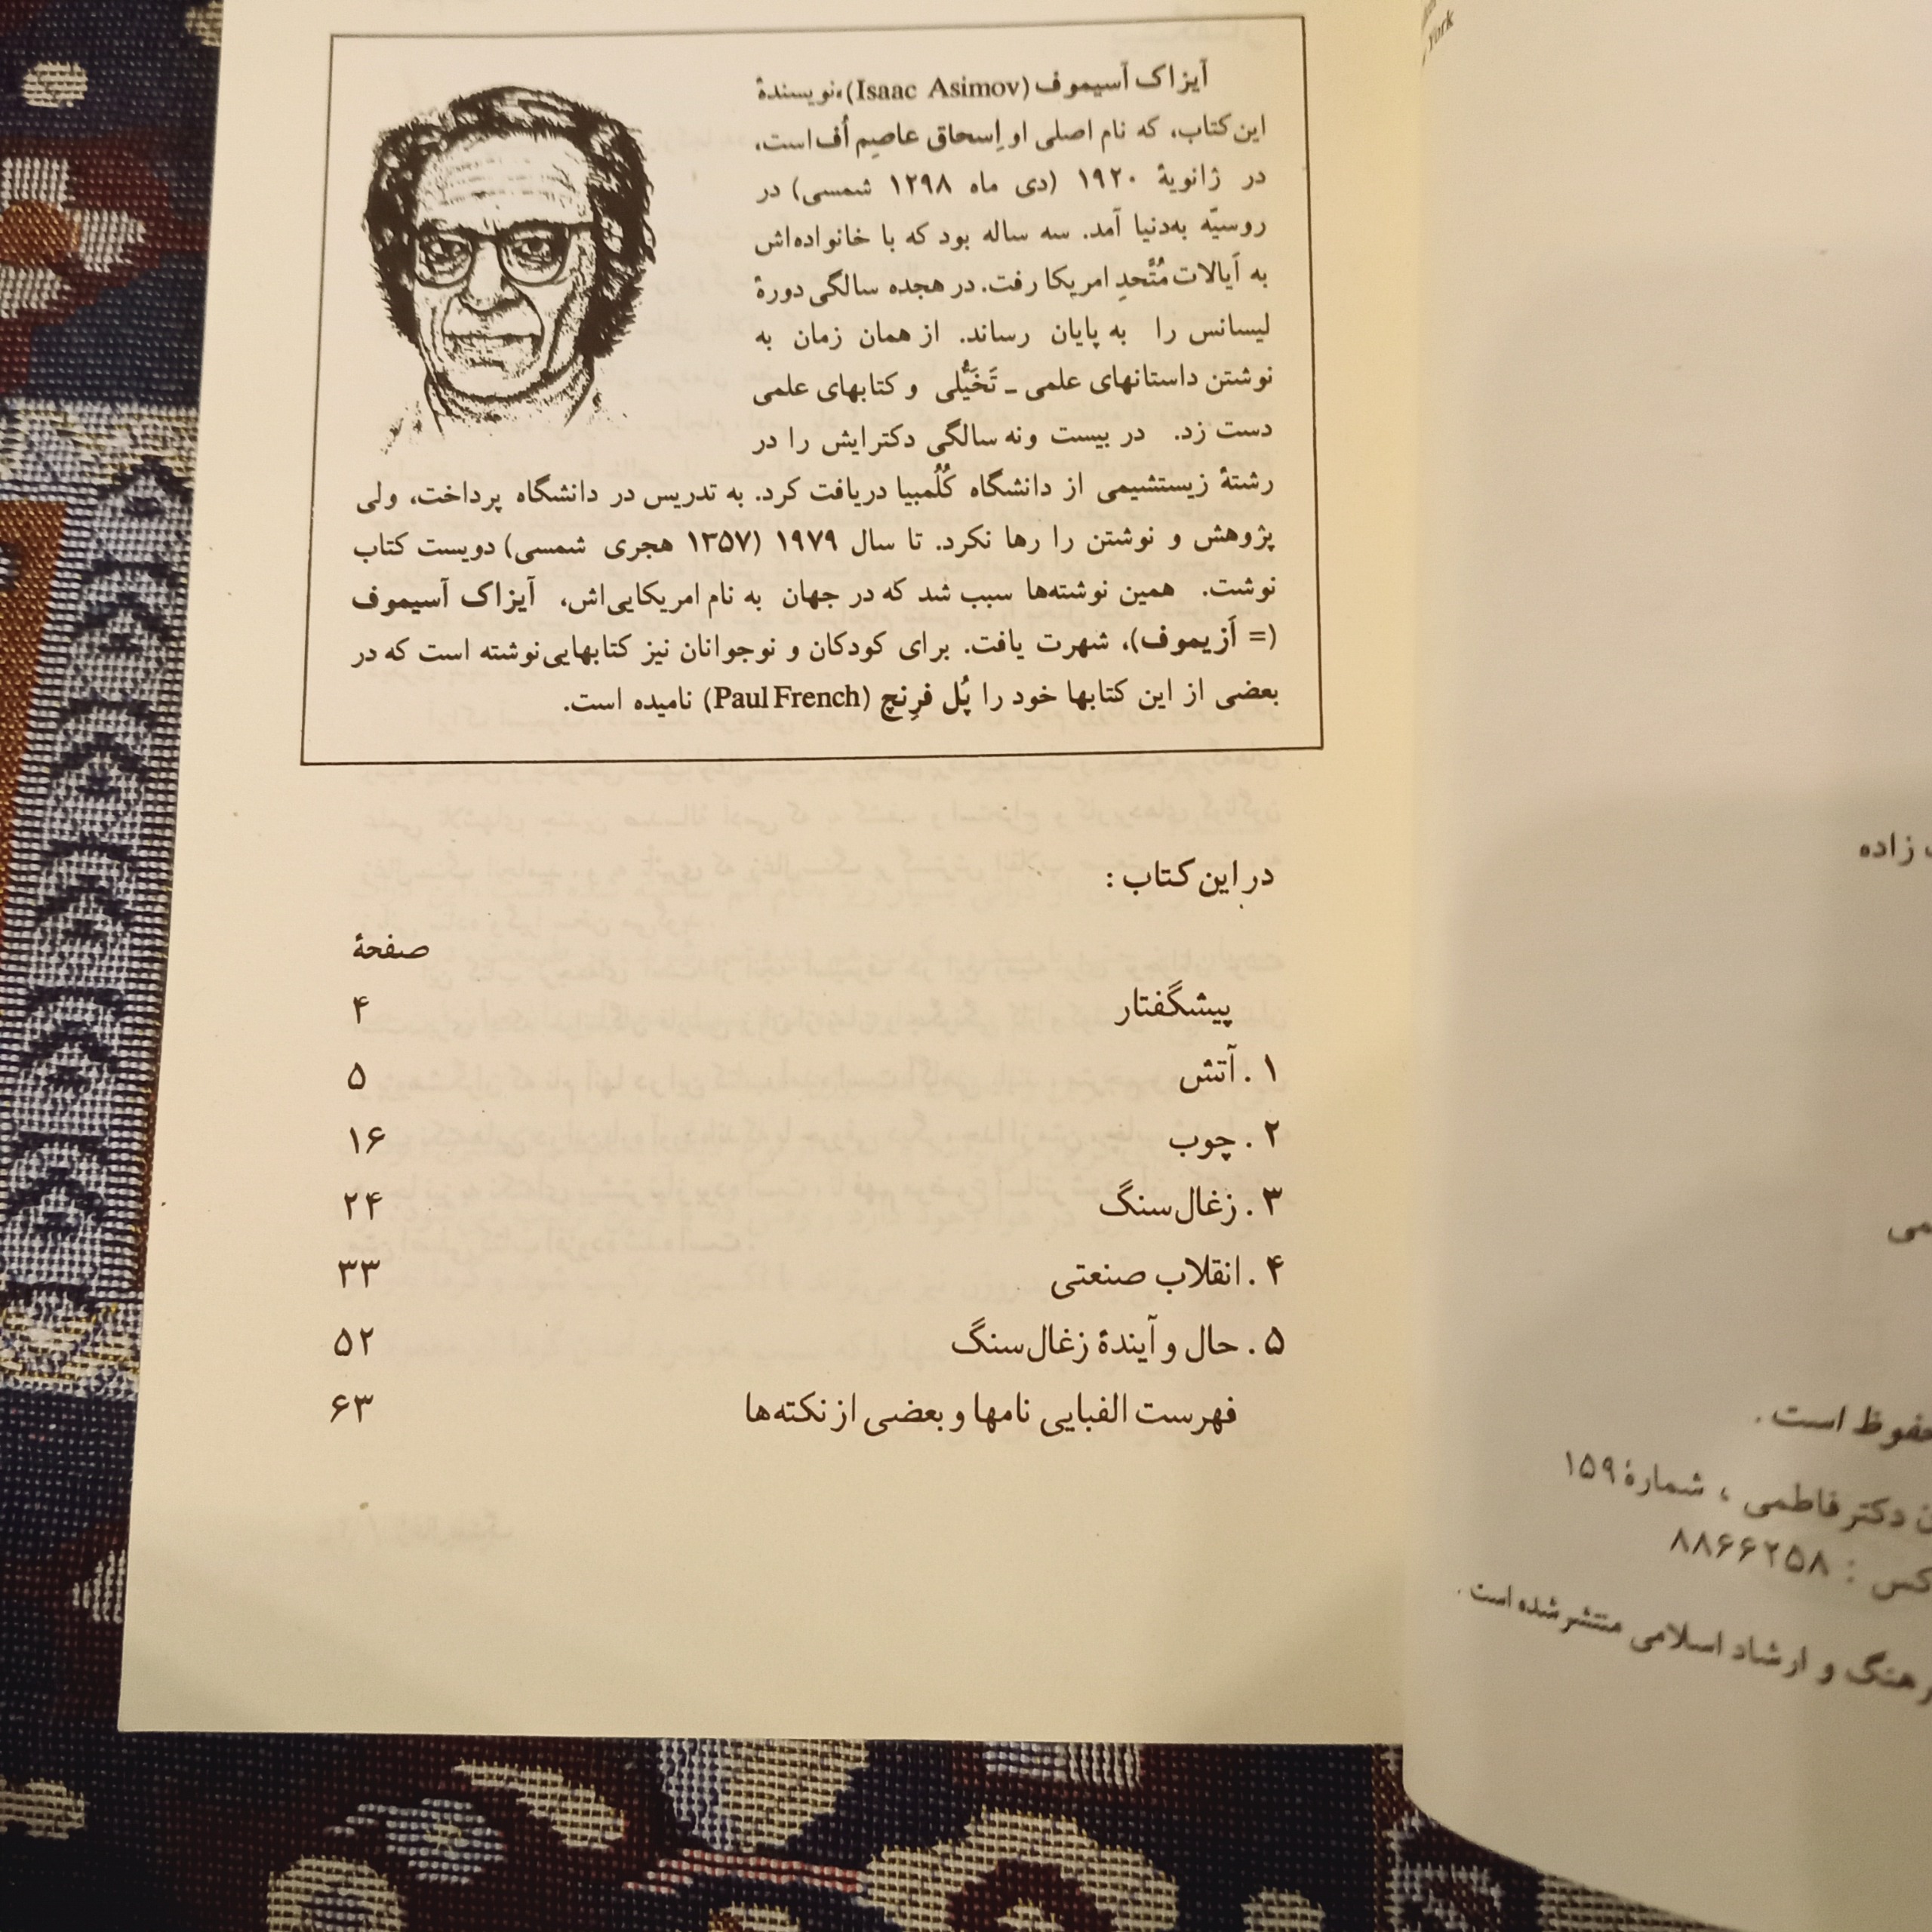 آیزاک آسیموف (Isaac Asimov)، نویسندهٔ
این کتاب، که نام اصلی او اِسحاق عاصِم اُف است،
در ژانویهٔ ۱۹۲۰ (دی ماه ۱۲۹۸ شمسی) در
روسیّه به‌دنیا آمد. سه ساله بود که با خانواده‌اش
به آیالات مُتَّحدِ امریکا رفت. در هجده سالگی دورهٔ
لیسانس را به پایان رساند. از همان زمان به
نوشتن داستانهای علمی ـ تَخَیُّلی و کتابهای علمی
دست زد. در بیست ونه سالگی دکترایش را در
رشتهٔ زیستشیمی از دانشگاه کُلُمبیا دریافت کرد. به تدریس در دانشگاه پرداخت، ولی
پژوهش و نوشتن را رها نکرد. تا سال ۱۹۷۹ (۱۳۵۷ هجری شمسی) دویست کتاب
نوشت. همین نوشته‌ها سبب شد که در جهان به نام امریکایی‌اش، آیزاک آسیموف
(= اَزیموف)، شهرت یافت. برای کودکان و نوجوانان نیز کتابهایی نوشته است که در
بعضی از این کتابها خود را پُل فرِنچ (Paul French) نامیده است.
در این کتاب :
صفحهٔ
پیشگفتار ۴
۱ . آتش ۵
۲ . چوب ۱۶
۳ . زغال‌سنگ ۲۴
۴ . انقلاب صنعتی ۳۳
۵ . حال و آیندهٔ زغال‌سنگ ۵۲
فهرست الفبایی نامها و بعضی از نکته‌ها ۶۳
York
زاده
است .
دکتر فاطمی ، شمارهٔ ۱۵۹
: ۸۸۶۶۲۵۸
و ارشاد اسلامی منتشر شده است .